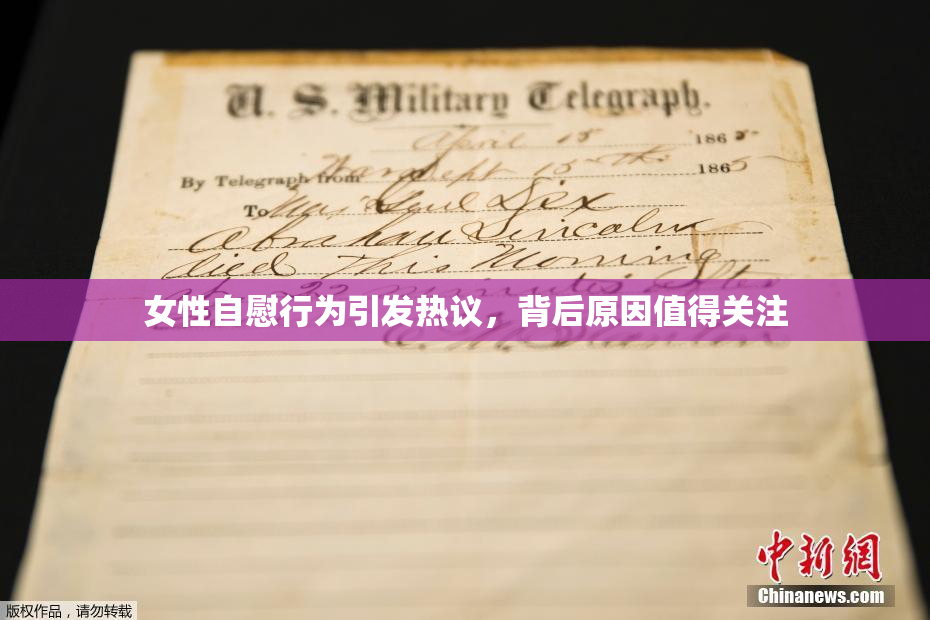 U. S. Military Telegraph.
April 15 1865
By Telegraph from War Dept 15th 1865
To Maj Genl Dix
Abraham Lincoln
died This Morning
22 minutes after
女性自慰行为引发热议，背后原因值得关注
E. M. Stanton
中新网
版权作品，请勿转载
Chinanews.com